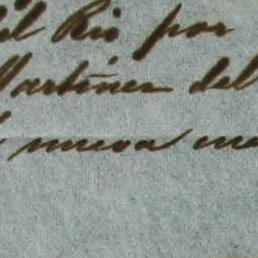 del Rio por
Martinez del
nueva